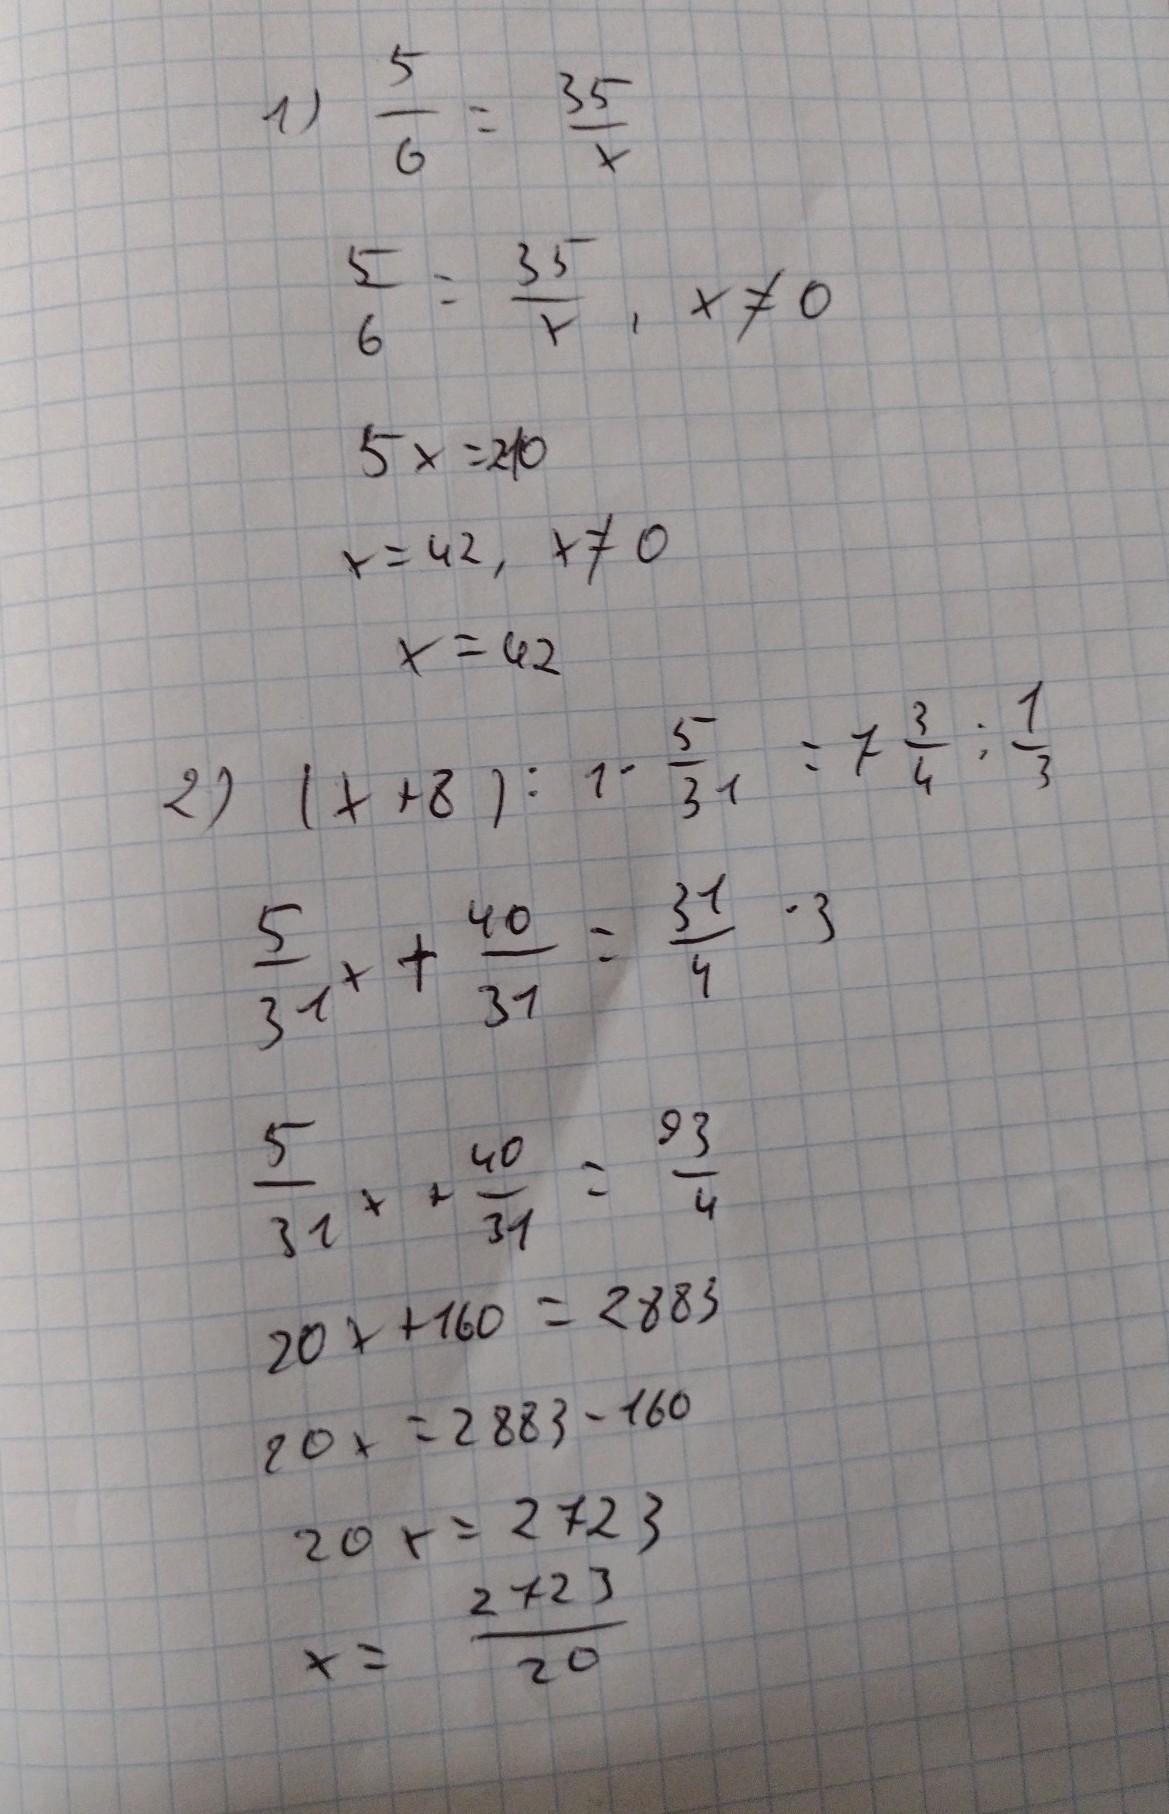 1) 5/6 = 35/x
5/6 = 35/x , x ≠ 0
5x = 210
x = 42, x ≠ 0
x = 42
2) (x + 8) : 1 · 5/31 = 7 3/4 : 1/3
5/31 x + 40/31 = 31/4 · 3
5/31 x + 40/31 = 93/4
20x + 160 = 2883
20x = 2883 - 160
20x = 2723
x = 2723/20